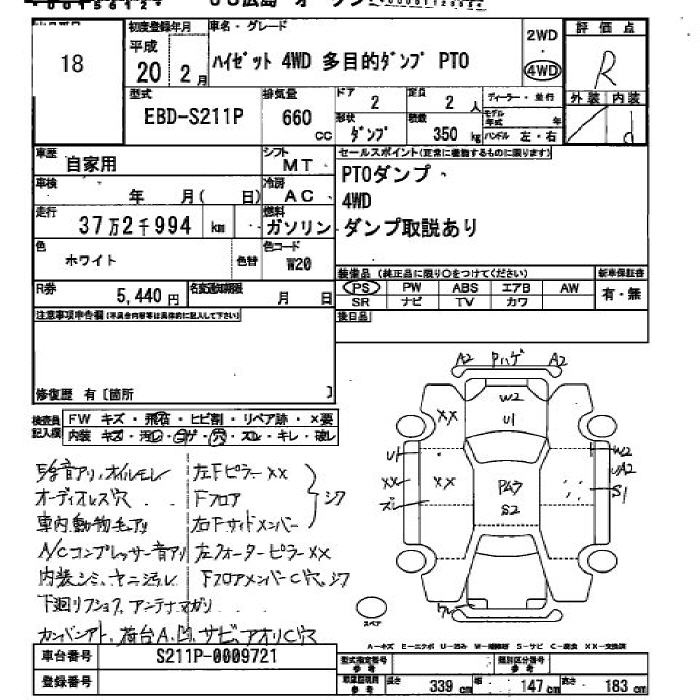 初度登録年月 車名・グレード
平成 20年 2月
18
ハイゼット 4WD 多目的ダンプ PTO
2WD
4WD
評価点
R
外装 内装
d
型式
EBD-S211P
排気量
660 cc
ドア
2
定員
2 人
ディーラー・並行
モデル年式 年
形状
ダンプ
積載
350 kg
ハンドル 左・右
車歴
自家用
シフト
MT
車検
年 月( 日)
冷房
AC
走行
37万2千994 km
燃料
ガソリン
色
ホワイト
色替
色コード
W20
R券
5,440 円
名変通知期限
月 日
セールスポイント(正常に機能するものに限ります)
PTOダンプ、
4WD
ダンプ取説あり
装備品(純正品に限り○をつけてください)
新車保証書
PS PW ABS エアB AW
有・無
SR ナビ TV カワ
後日品
注意事項申告欄(不具合内容等は具体的に記入して下さい)
修復歴 有〔箇所 〕
検査員記入欄
FW キズ・飛石・ヒビ割・リペア跡・×要
内装・キズ・汚レ・コゲ・穴・スレ・キレ・破レ
オーディオレス穴
車内動物毛アリ
A/Cコンプレッサー音アリ
内装シミ、ヤニ
アンテナマガリ
カンバンアト、荷台A、凹、サビ、アオリC穴
左Fピラー××
Fフロア
右Fサイドメンバー
左クォーターピラー××
FフロアメンバーC穴、シワ
シワ
A2 Pハゲ A2
W2
U1
××
U1
W2
UA2
××
××
PAワ
S2
S1
スレ
スペア
A=キズ E=エクボ U=凹み W=補修跡 S=サビ C=腐食 ××=交換済
車台番号
S211P-0009721
登録番号
型式指定番号 参考
類別区分番号 参考
長さ 339 cm
幅 147 cm
高さ 183 cm